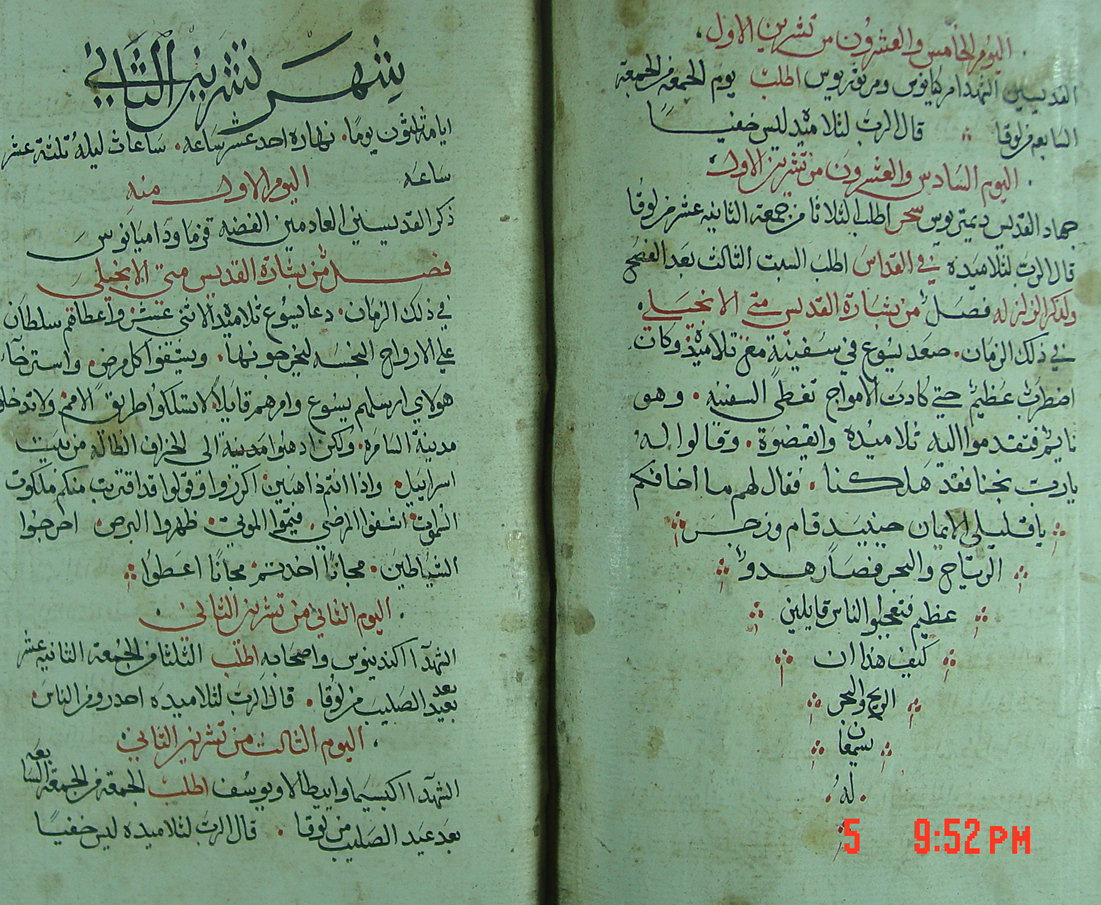 اليوم الخامس والعشرون من تشرين الاول
القديسين الشهدا مركيانوس ومرتوريوس اطلب يوم الجمعه من الجمعة
السابعه من لوقا قال الرب لتلاميذه ليس خفيا
اليوم السادس والعشرون من تشرين الاول
جهاد القديس ديمتريوس سحر اطلب الثلاثا من جمعة الثانيه عشر من لوقا
قال الرب لتلاميذه في القداس اطلب السبت الثالث بعد الفصح
ولذكر الزلزله فصل من بشارة القديس متى الانجيلي
في ذلك الزمان صعد يسوع في سفينة مع تلاميذه وكان
اضطراب عظيم حتى كادت الامواج تغطى السفينه وهو
نايم فتقدموا اليه تلاميذه وايقضوه وقالوا له
يا رب نجنا فقد هلكنا فقال لهم ما اخافكم
يا قليلي الايمان حينيد قام وزجر
الرياح والبحر فصار هدوا
عظيم فتعجبوا الناس قايلين
كيف هذا ان
الريح والبحر
يسمعان
له
شهر تشرين الثاني
ايامه ثلثون يوما نهاره احد عشر ساعه ساعات ليله ثلثة عشر
ساعه
اليوم الاول منه
ذكر القديسين العادمين الفضه قزما ودميانوس
فصل من بشارة القديس متى الانجيلي
في ذلك الزمان دعا يسوع تلاميذه الاثني عشر واعطاهم سلطان
على الارواح النجسه ليخرجونها ويشفوا كل مرض واسترخا
هولاي ارسلهم يسوع وامرهم قايلا لا تسلكوا طريق الامم ولا تدخلوا
مدينة السامره ولكن اذهبوا الى الخراف الظاله من بيت
اسراييل واذا انتم ذاهبين اكرزوا وقولوا قد اقتربت منكم ملكوت
السموات اشفوا المرضى قيموا الموتى طهروا البرص اخرجوا
الشياطين مجانا اخدتم مجانا اعطوا
اليوم الثاني من تشرين الثاني
الشهدا اكندينوس واصحابه اطلب الثلثا من الجمعة الثانية عشر
بعد عيد الصليب من لوقا قال الرب لتلاميذه احدروا من الناس
اليوم الثالث من تشرين الثاني
الشهدا اكبسيما وايبطالا ويوسف اطلب الجمعة من الجمعة السابعه
بعد عيد الصليب من لوقا قال الرب لتلاميذه ليس خفيا
5 9:52 PM